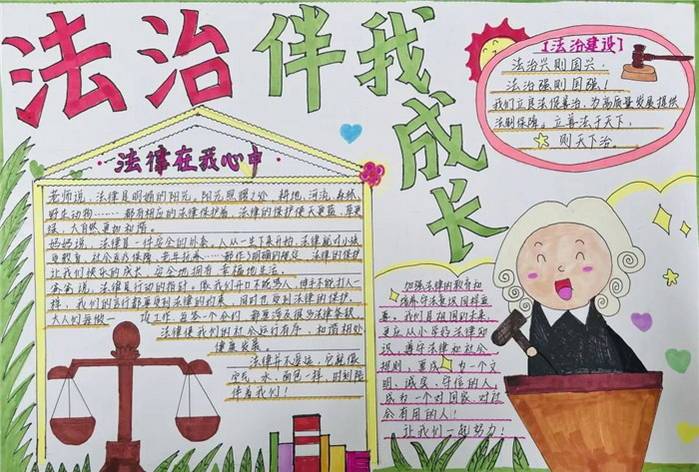 法治伴我成长
【法治建设】
法治兴则国兴,
法治强则国强!
我们立良法促善治,为高质量发展提供
法制保障,立善法于天下,
则天下治.
法律在我心中
老师说,法律是明媚的阳光,阳光照耀之处 耕地、河流、森林
野生动物……都有相应的法律保护着,法律的保护使天更蓝、草更
绿、大自然更加和谐。
妈妈说,法律是一件安全的外套,人从一生下来开始,法律就对小孩
受教育、社会医疗保障、老年扶养……都作了明确的规定 法律的保护
让我们快乐的成长 安全地拥有 幸福地生活。
爸爸说,法律是行动的指针,像我们开口不能骂人 伸手不能打人一
样,我们的言行都要受到法律的约束,同时也受到法律的保护。
大人们每做一 项工作,出台一个合同 都要涉及很多法律条款
法律使我们的社会运行有序,和谐相处
健康发展。
法律并不遥远,它就像
空气、水、面包一样,时刻陪
伴着我们!
加强法律的教育和
培养守法意识同样重
要,我们是祖国的未来,
更应从小学习法律知
识,遵守法律和社会
规则,要成为一个文
明、诚实、守信的人
成为一个对国家 对社
会有用的人!
让我们一起努力!